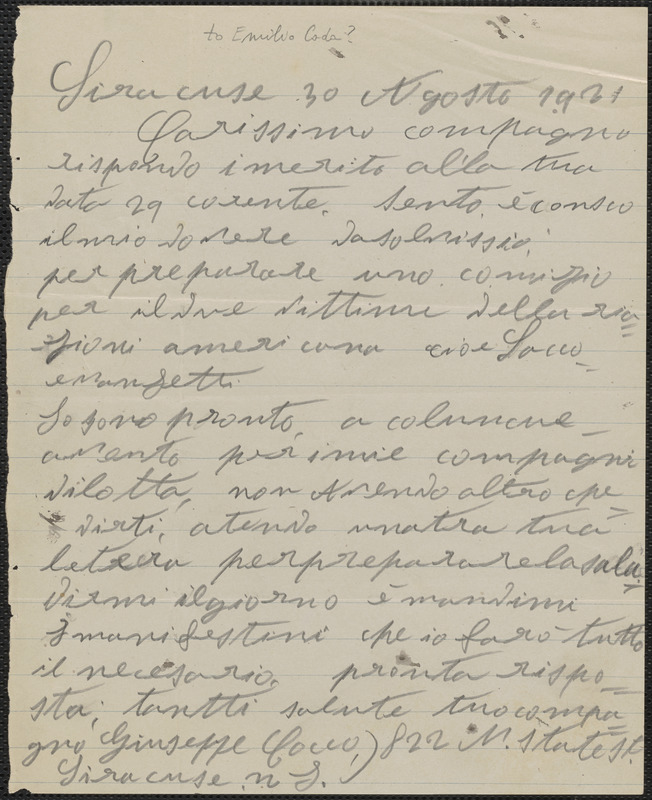 to Emilio Coda?
Siracuse 30 Agosto 1921
Carissimo compagno
rispondo imerito alla tua
data 29 corente. sento, é consco
ilmio dovere dasolvissio,
per preparare uno comizio
per il due vittime della ria=
zioni americana cioe Sacco=
evanzetti
Io sono pronto, a coluncue=
avento per imie compagni
dilotta, non Avendo altro che=
dirti, atendo unatra tua
letera perpreparare lasala=
dirmi ilgiorno é mandimi
manifestini che io farò tutto
il necesario, pronta rispo=
sta, tantti salute tuocompa=
gno Giuseppe Cocco,) 822 N. State St.
Siracuse, n. J.